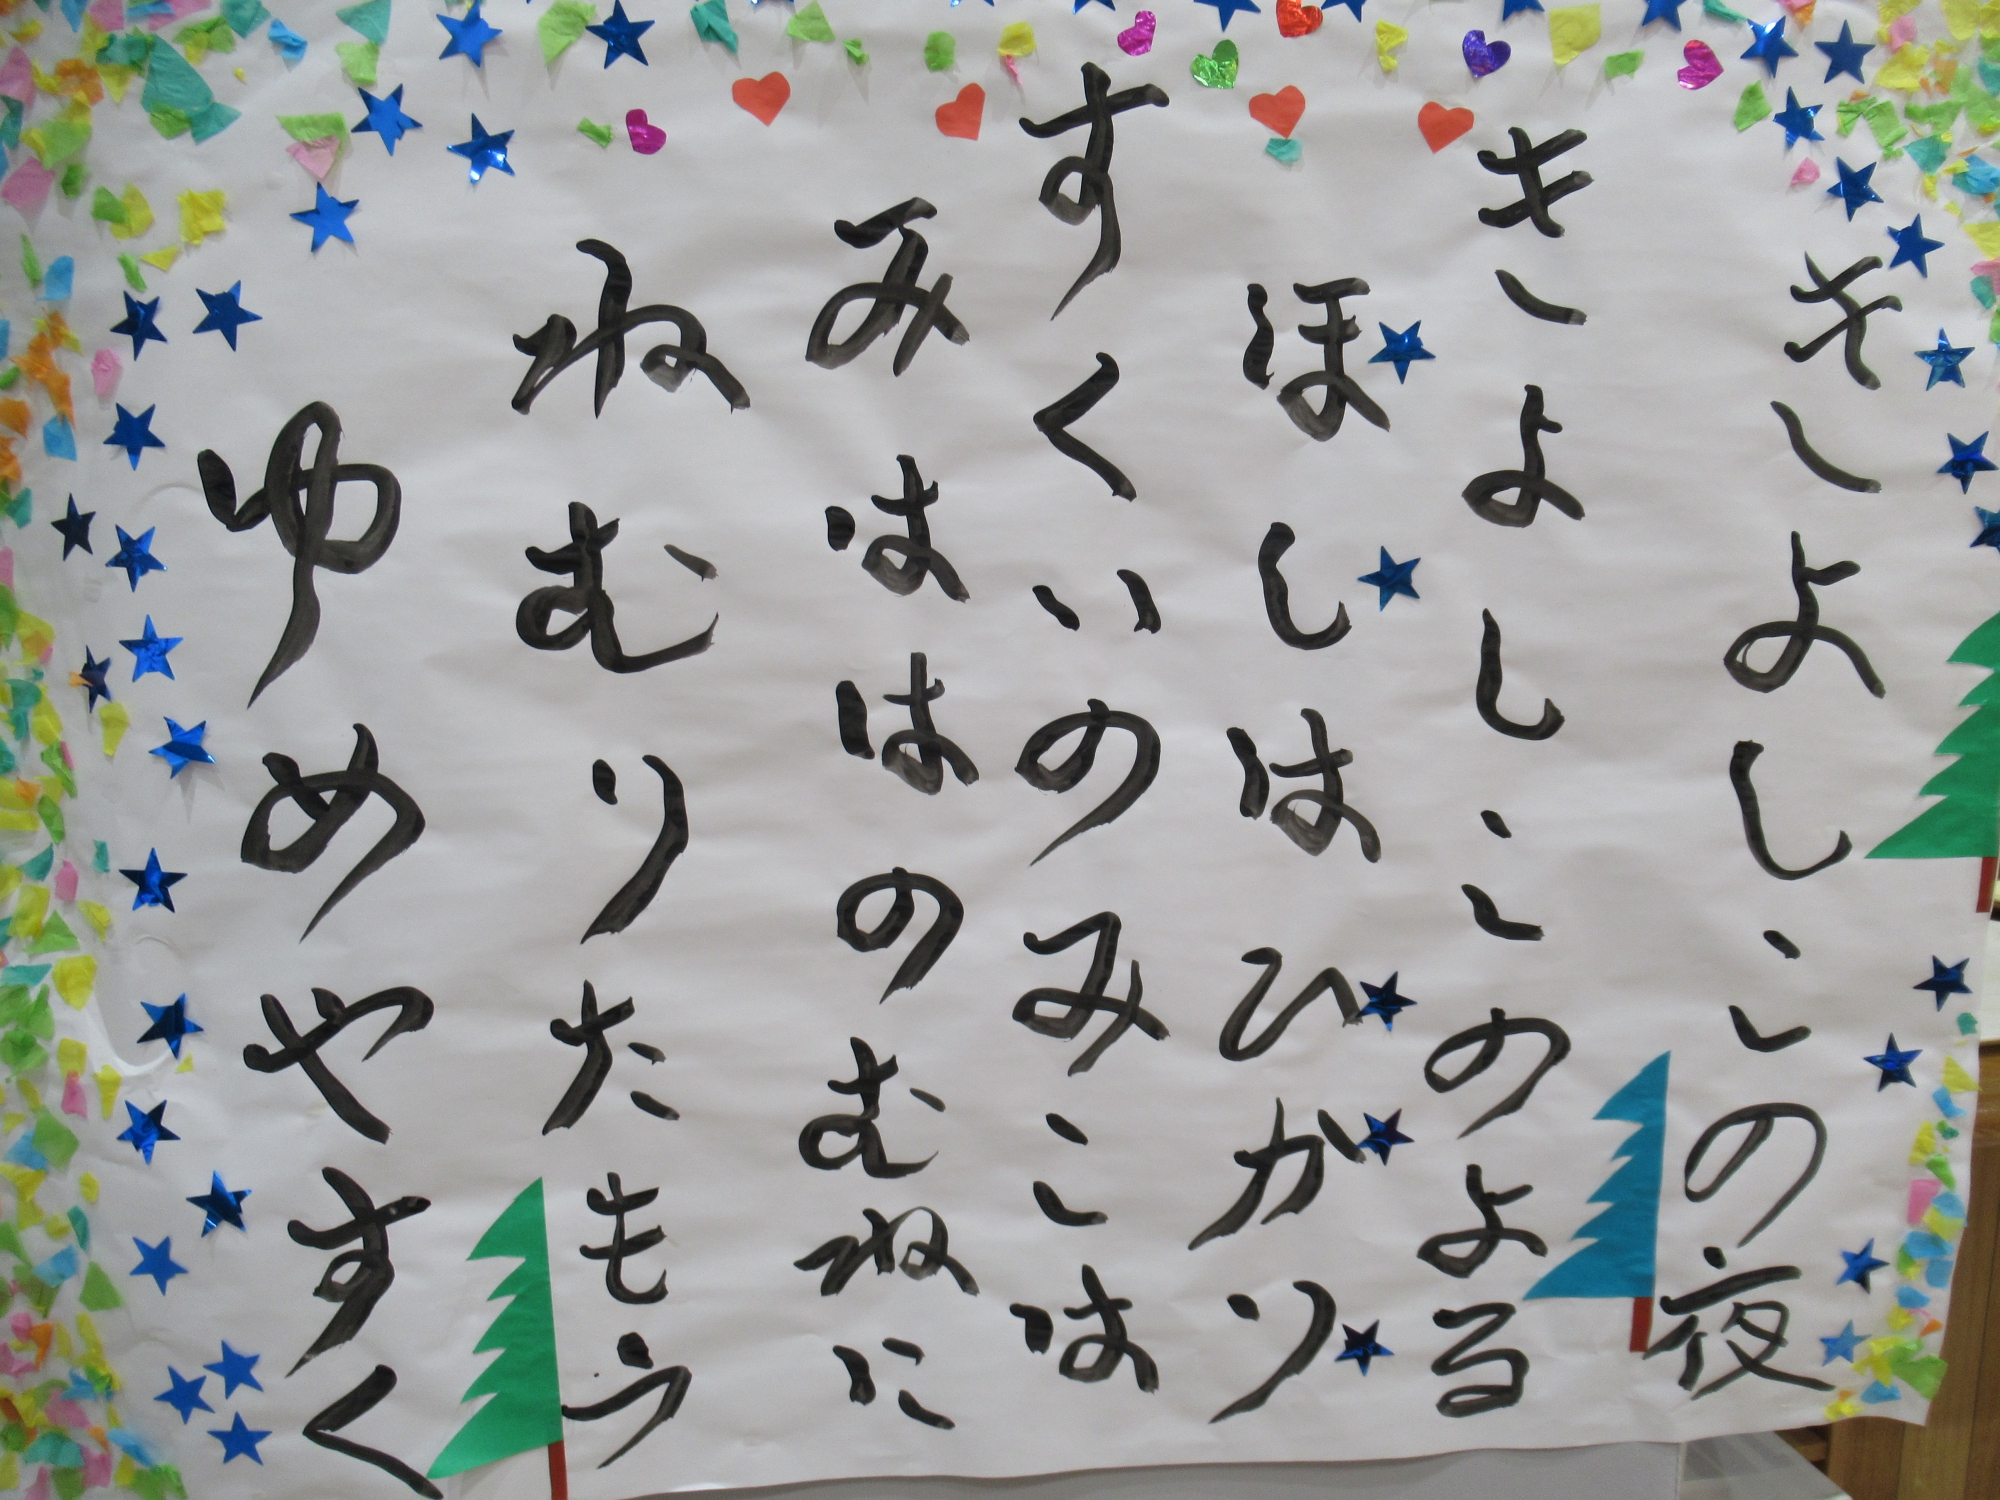 きよしこの夜
きよしこのよる
ほしはひかり
すくいのみこは
みははのむねに
ねむりたもう
ゆめやすく